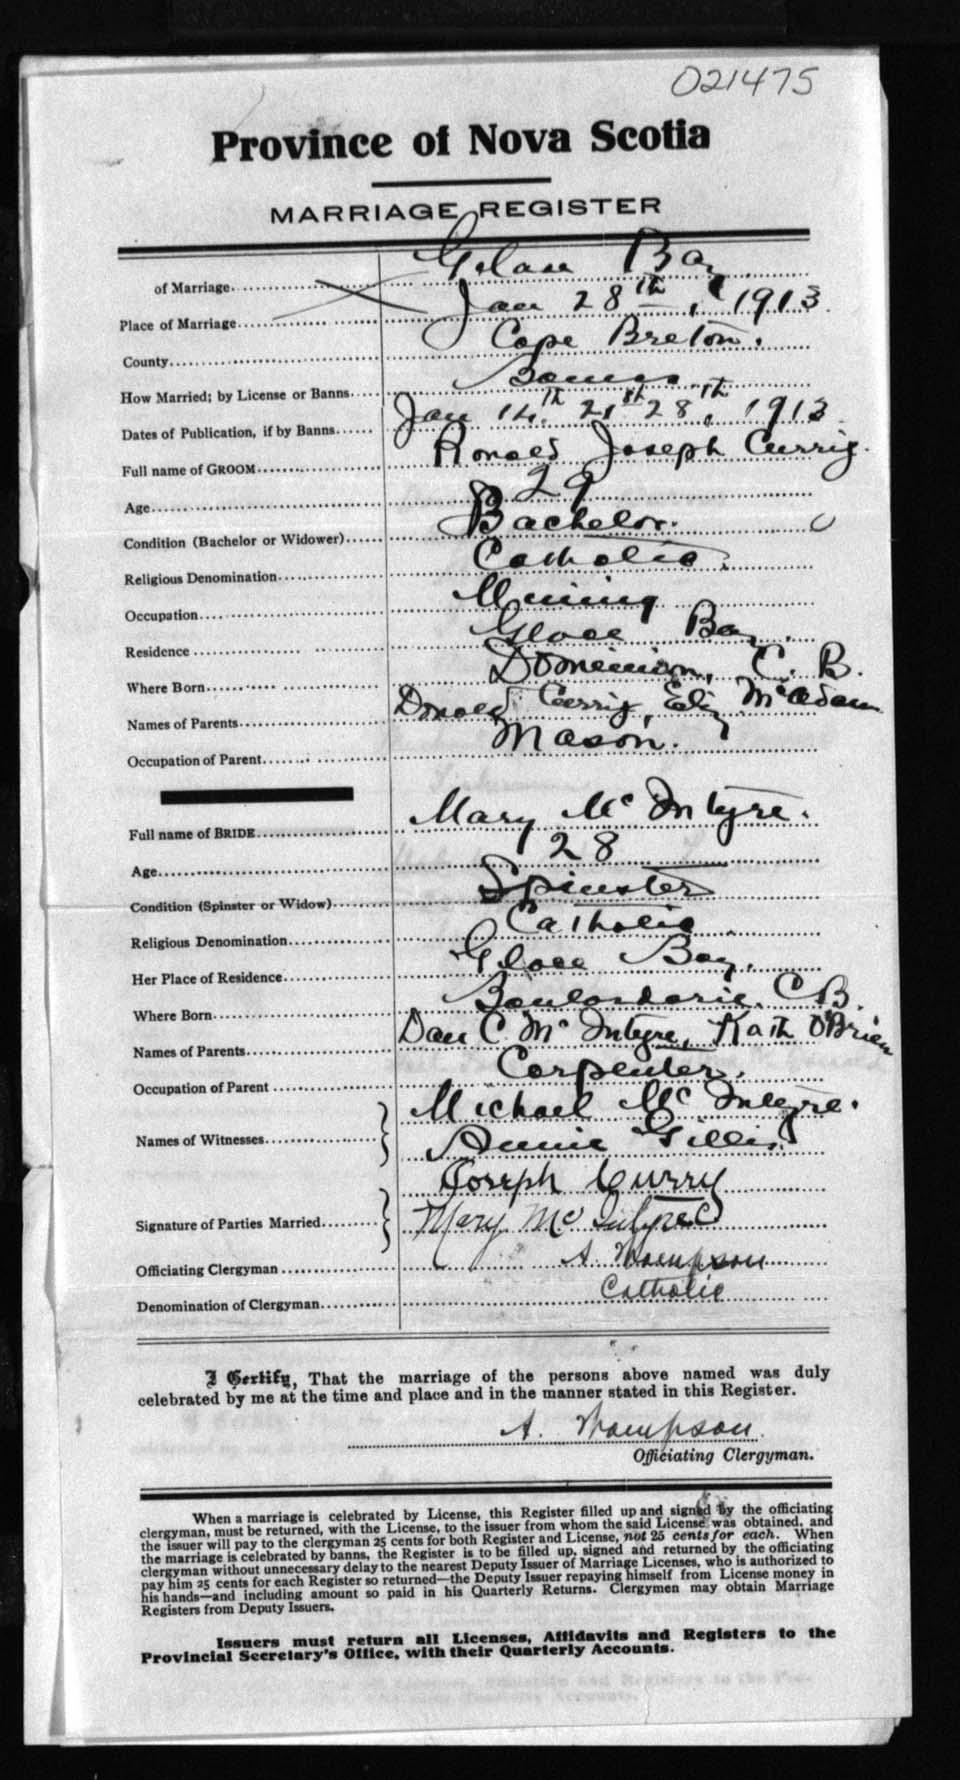 021475
Province of Nova Scotia
MARRIAGE REGISTER
of Marriage Glace Bay
Place of Marriage Jan 28th, 1913
County Cape Breton.
How Married; by License or Banns Banns
Dates of Publication, if by Banns Jan 14th 21st 28th, 1913
Full name of GROOM Ronald Joseph Currie.
Age 29
Condition (Bachelor or Widower) Bachelor.
Religious Denomination Catholic.
Occupation Mining
Residence Glace Bay.
Where Born Dominion, C. B.
Names of Parents Donald Currie, Eliz McAdam
Occupation of Parent Mason.
Full name of BRIDE Mary McIntyre.
Age 28
Condition (Spinster or Widow) Spinster
Religious Denomination Catholic
Her Place of Residence Glace Bay.
Where Born Boulardarie. C B.
Names of Parents Dan C. McIntyre, Kath O'Brien
Occupation of Parent Carpenter.
Michael McIntyre.
Names of Witnesses
Annie Gillis
Joseph Curry
Signature of Parties Married Mary McIntyre
Officiating Clergyman A. Thompson
Denomination of Clergyman Catholic
I Certify, That the marriage of the persons above named was duly
celebrated by me at the time and place and in the manner stated in this Register.
A. Thompson
Officiating Clergyman.
When a marriage is celebrated by License, this Register filled up and signed by the officiating
clergyman, must be returned, with the License, to the issuer from whom the said License was obtained, and
the issuer will pay to the clergyman 25 cents for both Register and License, not 25 cents for each. When
the marriage is celebrated by banns, the Register is to be filled up, signed and returned by the officiating
clergyman without unnecessary delay to the nearest Deputy Issuer of Marriage Licenses, who is authorized to
pay him 25 cents for each Register so returned—the Deputy Issuer repaying himself from License money in
his hands—and including amount so paid in his Quarterly Returns. Clergymen may obtain Marriage
Registers from Deputy Issuers.
Issuers must return all Licenses, Affidavits and Registers to the
Provincial Secretary's Office, with their Quarterly Accounts.